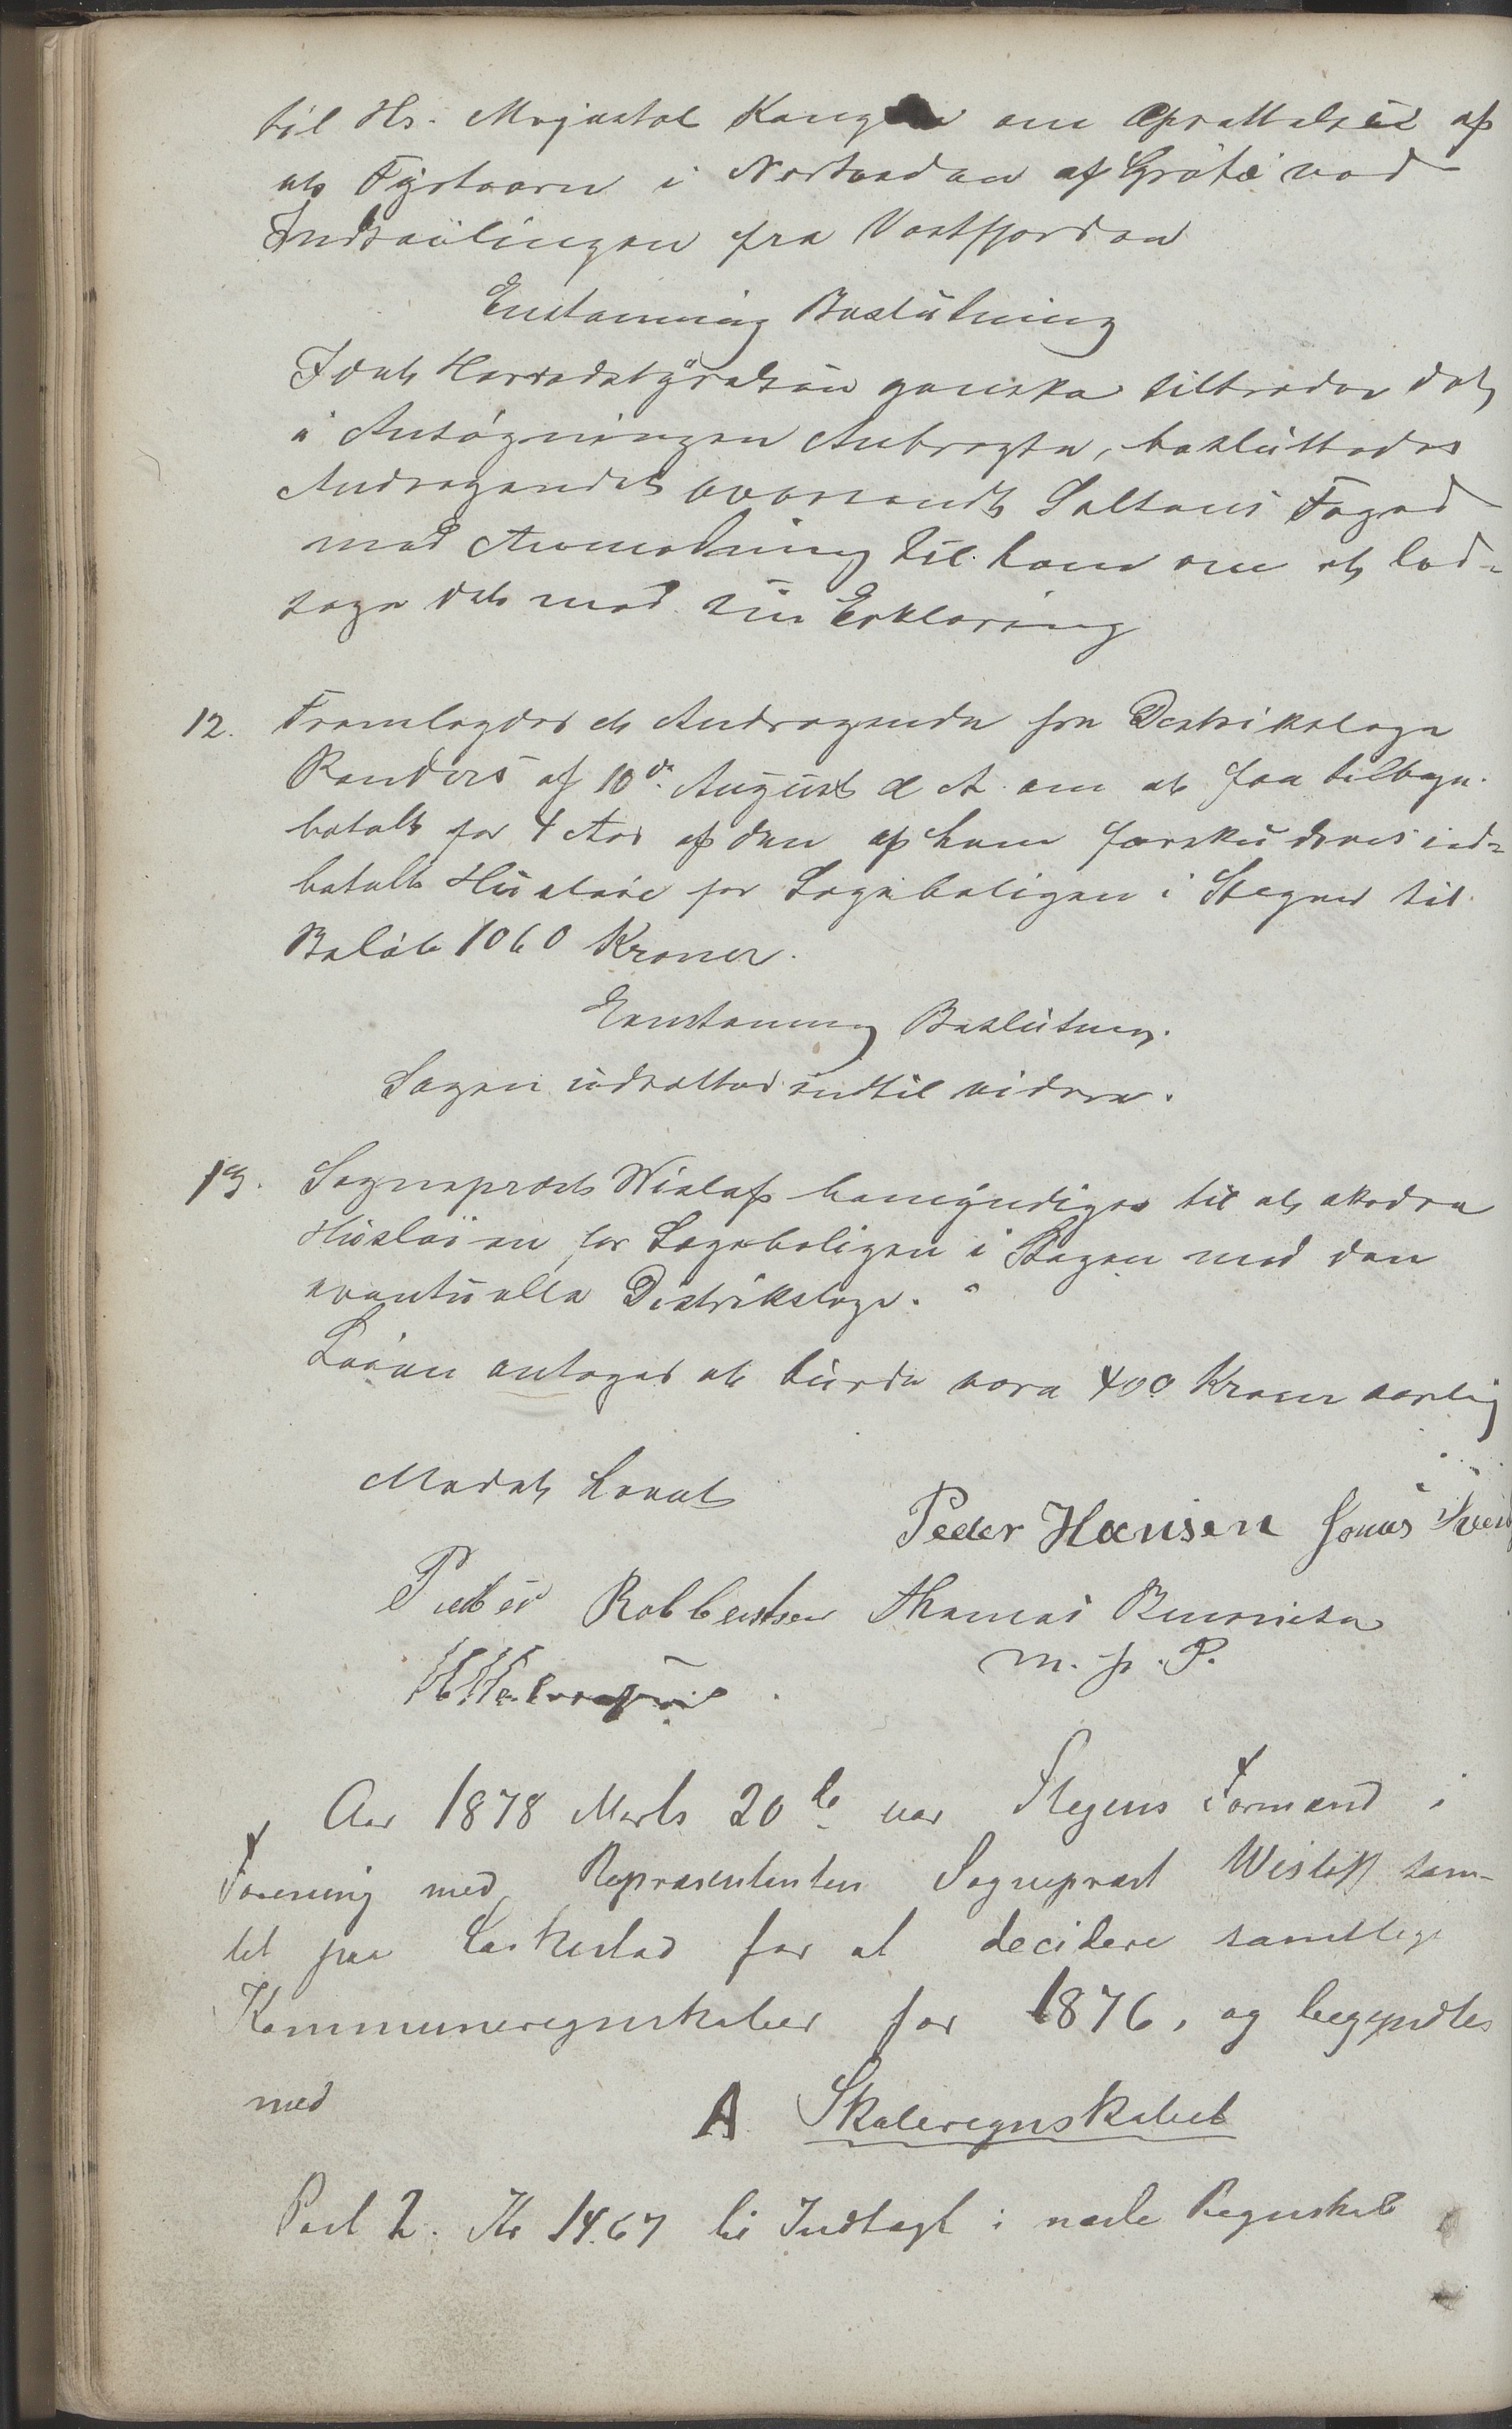 til Hs. Majestæt Kongen om Oprettelse af
et Fyrtaarn i Nordenden af Grøtø ved
Indseilingen fra Vestfjorden
Enstemmig Beslutning
Idet Herredsstyrelsen ganske tiltræder det
i Ansøgningen Anbragte, besluttedes
Andragendet oversendt Saltens Foged
med Anmodning til ham om at led-
sage det med sin Erklæring
12. Fremlagdes et Andragende fra Distriktslæge
Randers af 10de August d A. om at faa tilbage-
betalt for 4 Aar af den af ham forskudsvis ind-
betalt Husleie for Lægeboligen i Stegen til
Beløb 1060 Kroner.
Enstemmig Beslutning.
Sagen udsættes indtil videre.
13. Sognepræst Wisløff bemyndiges til at akordere
Husleien for Lægeboligen i Stegen med den
eventuelle Distriktslæge.
Leien antoges at burde være 400 Kroner aarlig
Mødet hævet
Peder Hansen Jonas
Peder Robbertsen Thomas
m. f. P.
Aar 1878 Marts 20de var Stegens Formænd i
Forening med Repræsentanten Sognepræst Wisløff sam-
let paa Laskestad for at decidere samtlige
Kommuneregnskaber for 1876, og begyndtes
med
A Skoleregnskabet
Post 2. Kr 14.67 til Indtægt i næste Regnskab